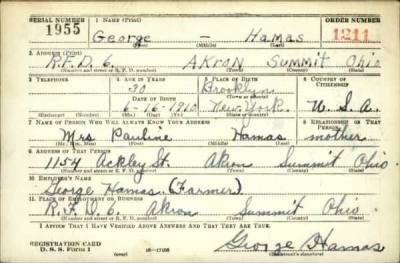 SERIAL NUMBER 1. NAME (Print) ORDER NUMBER
1955 George — Hamas 1211
(First) (Middle) (Last)
2. ADDRESS (Print)
R.F.D. 6. AKRON Summit Ohio
(Number and street or R. F. D. number) (Town) (County) (State)
3. TELEPHONE 4. AGE IN YEARS 5. PLACE OF BIRTH 6. COUNTRY OF CITIZENSHIP
30 Brooklyn
DATE OF BIRTH (Town or county)
6-16-1910 New York U.S.A.
(Exchange) (Number) (Mo.) (Day) (Yr.) (State or country)
7. NAME OF PERSON WHO WILL ALWAYS KNOW YOUR ADDRESS 8. RELATIONSHIP OF THAT PERSON
Mrs Pauline Hamas mother
(Mr., Mrs., Miss) (First) (Middle) (Last)
9. ADDRESS OF THAT PERSON
1154 Ackley St. Akron Summit Ohio
(Number and street or R. F. D. number) (Town) (County) (State)
10. EMPLOYER'S NAME
George Hamas. (Farmer)
11. PLACE OF EMPLOYMENT OR BUSINESS
R.F.D. 6 Akron Summit Ohio
(Number and street or R. F. D. number) (Town) (County) (State)
I AFFIRM THAT I HAVE VERIFIED ABOVE ANSWERS AND THAT THEY ARE TRUE.
REGISTRATION CARD George Hamas
D. S. S. Form 1 (over) (Registrant's signature)